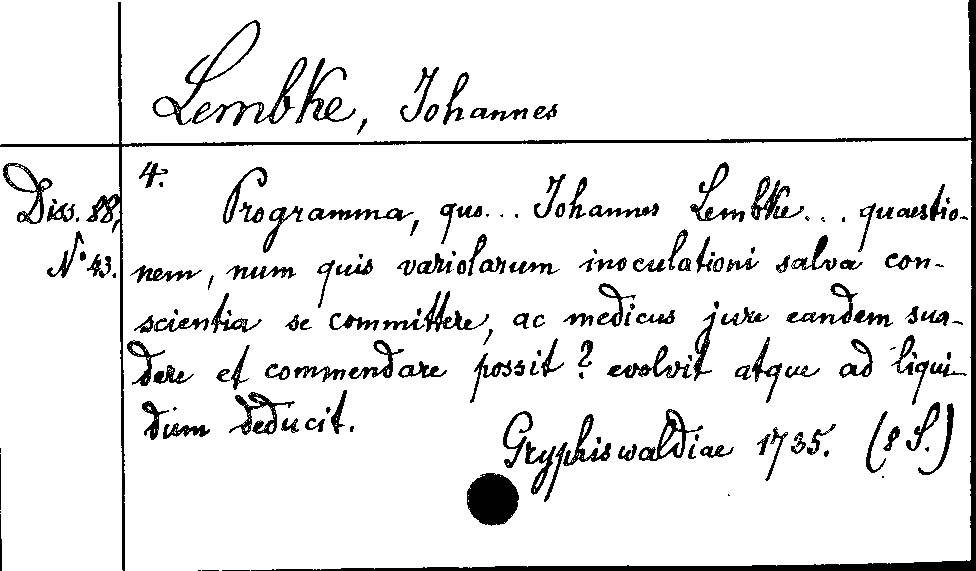 Lembke, Johannes
4.
Diss. 88, Programma, quo... Johannes Lembke... quaestio-
No 43. nem, num quis variolarum inoculationi salva con-
scientia se committere, ac medicus jure eandem sua-
dere et commendare possit? evolvit atque ad liqui-
dum deducit.
Gryphiswaldiae 1735. (8 S.)